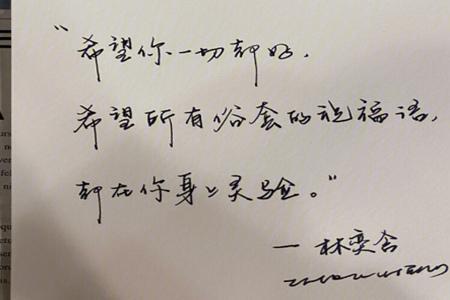 “希望你一切都好，
希望所有俗套的祝福语，
都在你身上灵验。”
— 林奕含